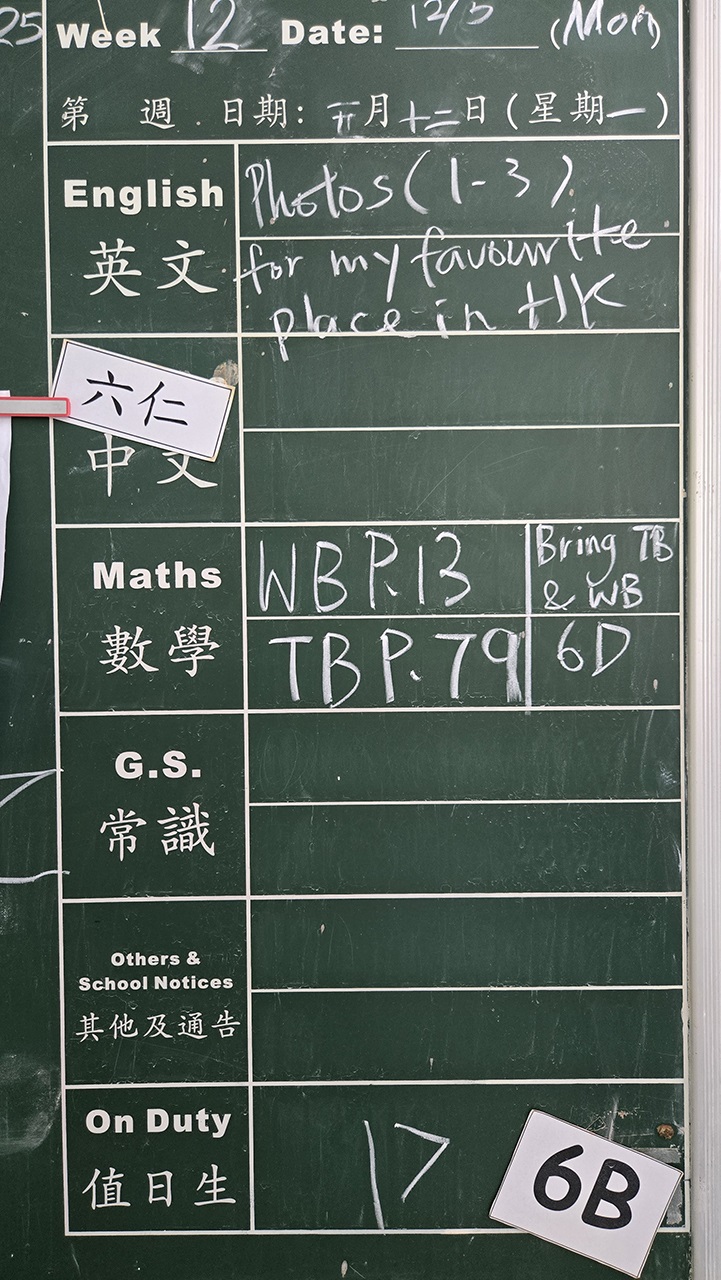 25
Week 12 Date: 12/5 (Mon)
第 週 日期: 五月十二日 (星期一)
English
英文
Photos (1-3)
for my favourite
place in HK
六仁
中文
Maths
數學
WB P.13
TB P.79
Bring TB
& WB
6D
G.S.
常識
Others &
School Notices
其他及通告
On Duty
值日生
17
6B